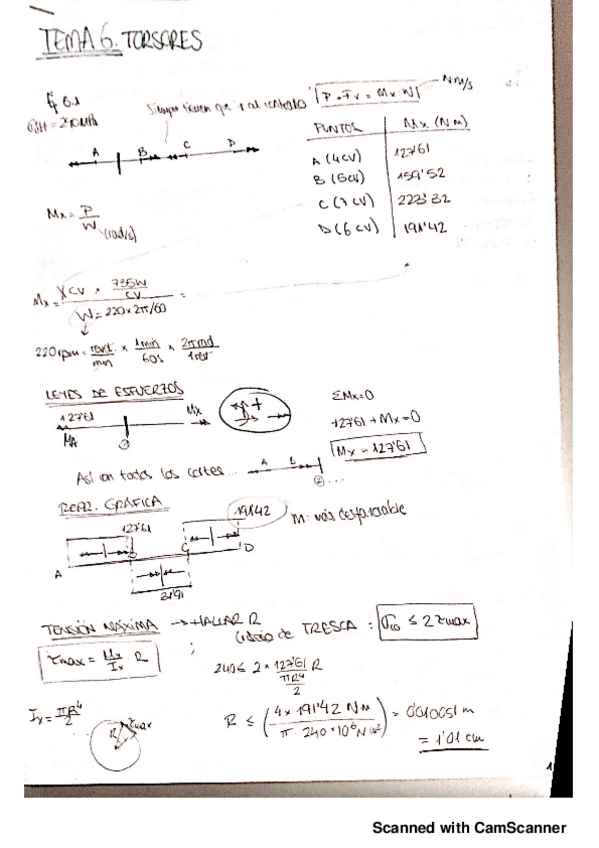 TEMA 6. TORSORES
Ej 6.1
Siempre tienen que ir al contrario
P = Fv = Mx·W
N·m/s
A B C D
PUNTOS Mx (N·m)
A (4CV) 127'61
B (5CV) 159'52
C (7 CV) 223'32
D (6 CV) 191'42
Mx = P / W (rad/s)
Mx = X CV × 735W/CV / W = 220×2π/60 =
220 rpm = rev/min × 1min/60s × 2π rad/1rev
LEYES DE ESFUERZOS
127'61 Mx
MA
ΣMx=0
-127'61 + Mx = 0
Mx = 127'61
Así en todos los cortes... A B ② ...
REPR. GRÁFICA
191'42 más desfavorable
127'61
A C D
31'91
TENSIÓN MÁXIMA → HALLAR R
Criterio de TRESCA : ≤ 2 τmax
τmax = Mx/Ix R ;
240 ≤ 2 × 127'61/(πR⁴/2) R
Ix = πR⁴/2
R τmax
R ≤ (4 × 191'42 N·m / π · 240×10⁶ N/m²) = 0'01 m
= 1'01 cm
1
Scanned with CamScanner